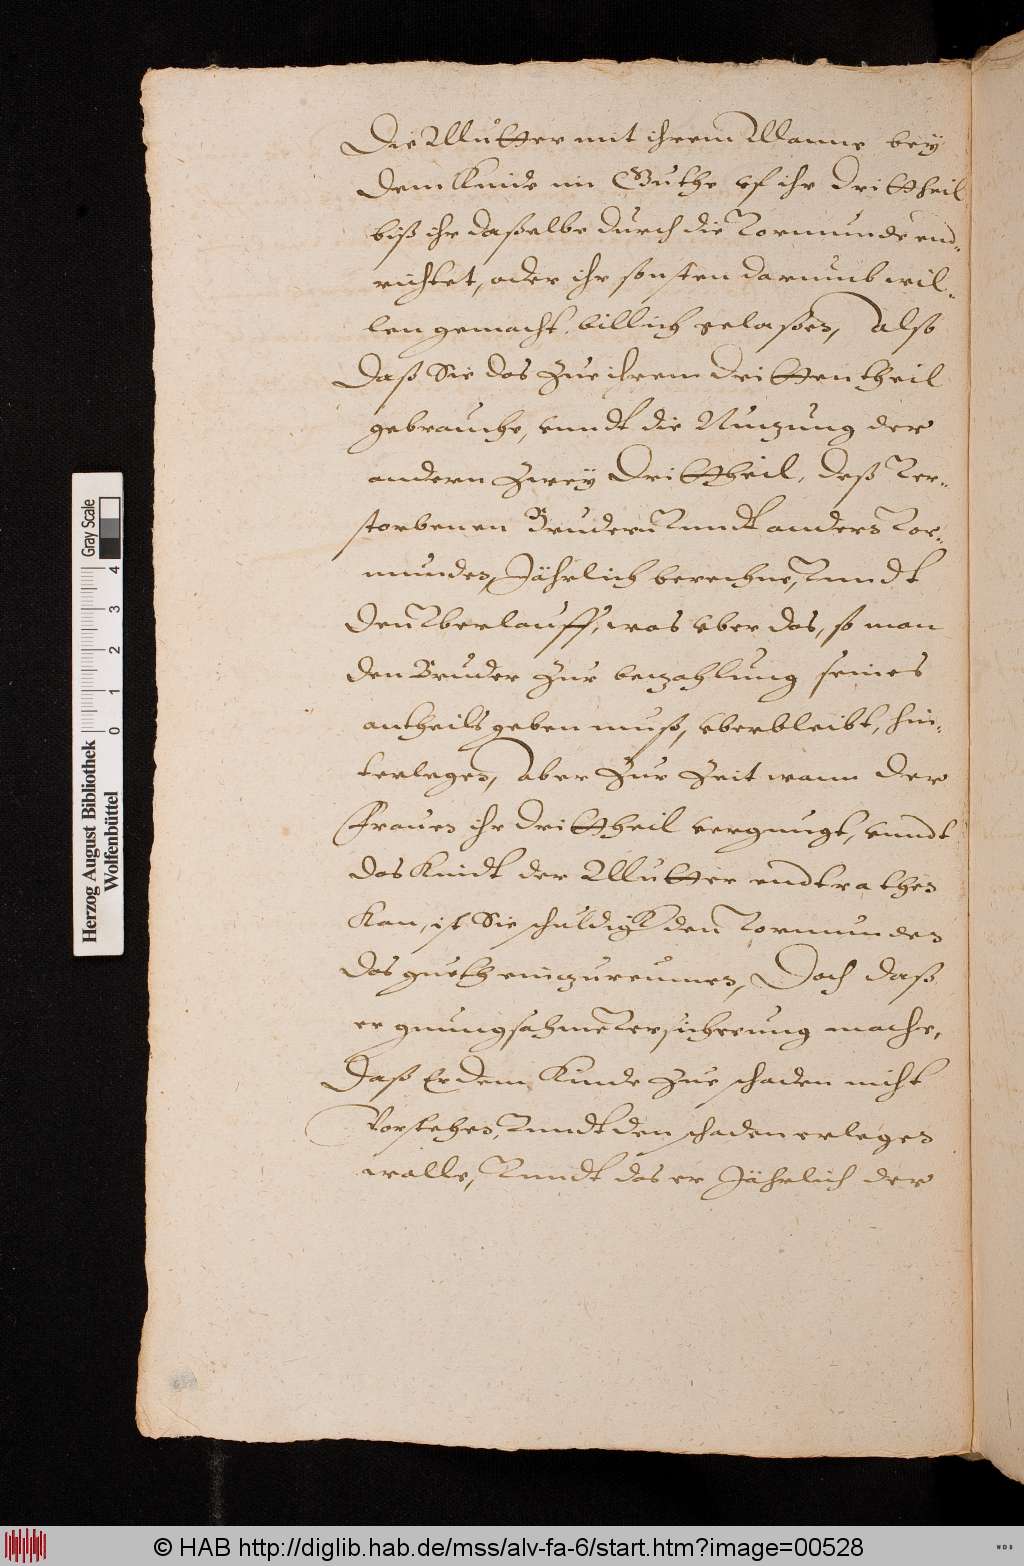 Die Mutter mit ihrem Manne bey
dem Kinde im Guthe uf ihr drittheil
biß ihr daßelbe durch die Vormunde end-
richtet, oder ihr sonsten darumb wil-
len gemacht, billich gelaßen, also
daß Sie das zue ihrem dritten theil
gebrauche, unndt die Nuczung der
andern zwey drittheil, deß Ver-
storbenen Brudern Vnndt anders Vor-
munden, Jährlich berechne, Vnndt
den Vberlauff, was vber das, so man
den Bruder zur beczahlung seines
antheils geben muß, vberbleibt, hin-
terlegen, aber zur Zeit wann der
Frauen ihr drittheil vergnugt, vnndt
das Kindt der Mutter endtrathen
kan, ist Sie schuldigk den Vormunden
das gueth einczureumen, Doch daß
er gnungsahme Versicherung mache,
daß Er dem Kinde zue schaden nicht
Vorstehen, Vnndt den schaden erlegen
wolle, Vnndt das er Jährlich der
Herzog August Bibliothek
Wolfenbüttel
0 1 2 3 4
Gray Scale
© HAB http://diglib.hab.de/mss/alv-fa-6/start.htm?image=00528